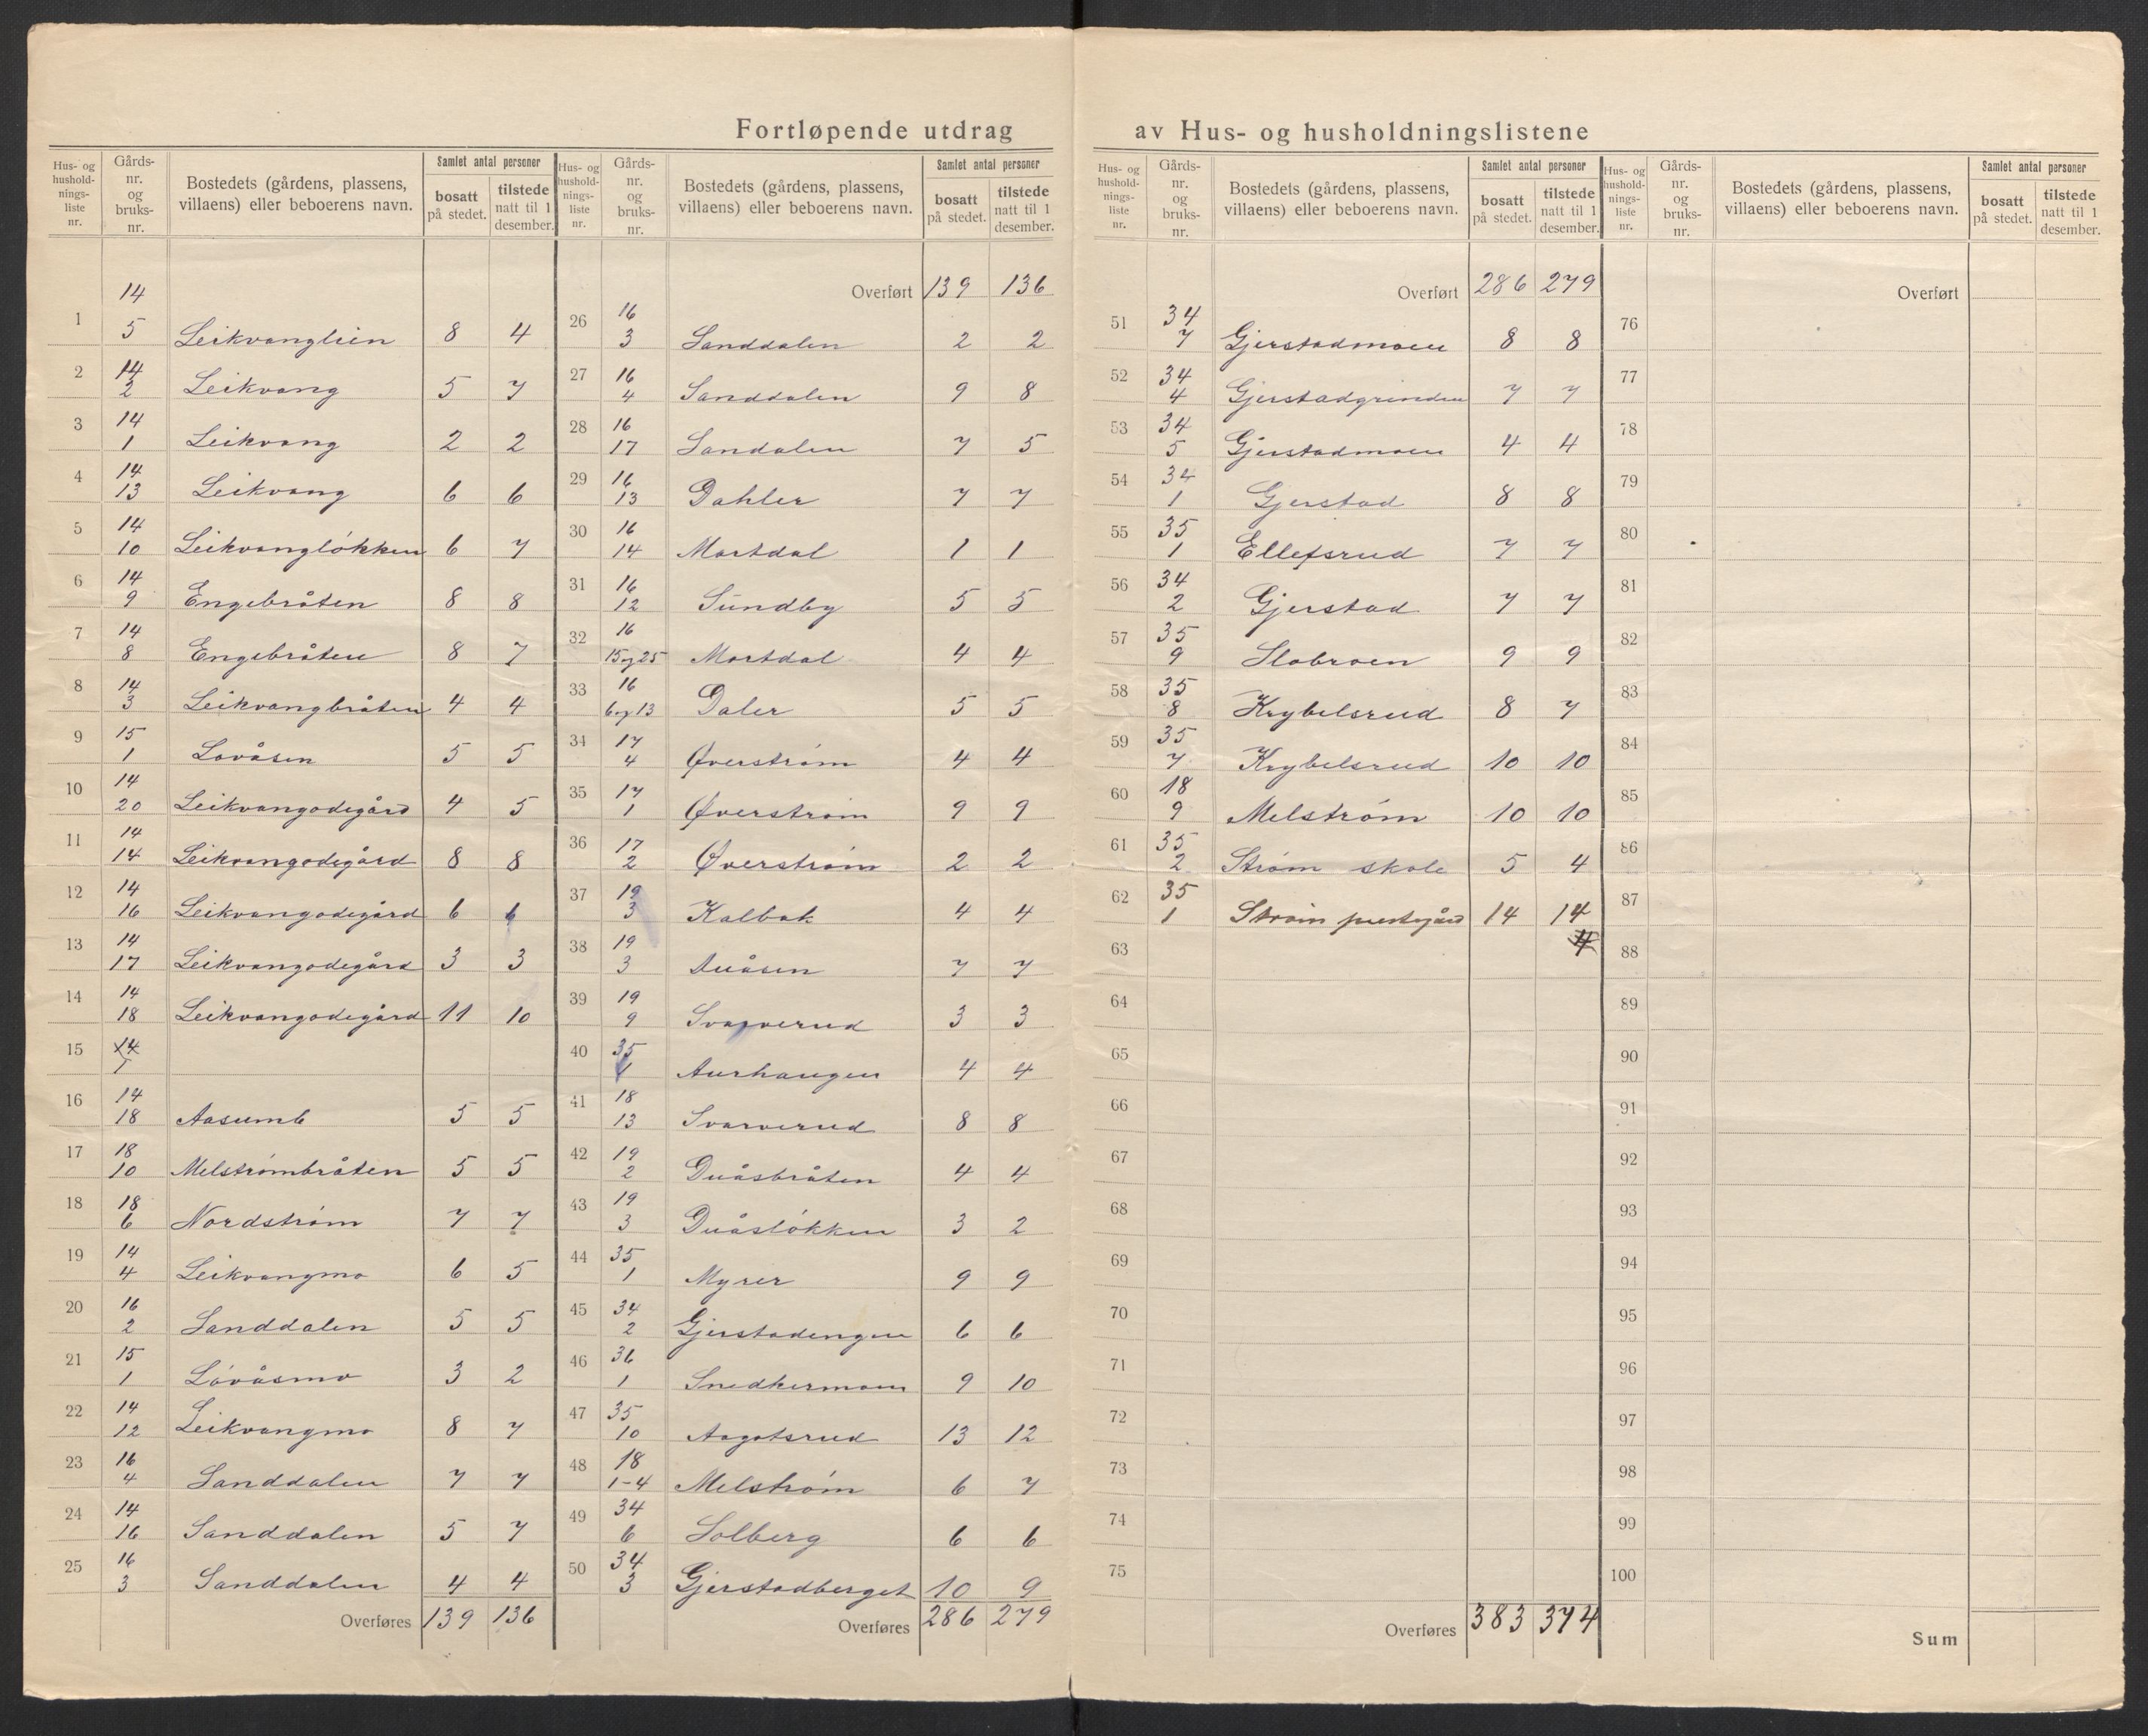 Fortløpende utdrag av Hus- og husholdningslistene
Hus- og husholdningsliste nr. Gårds- nr. og bruks- nr. Bostedets (gårdens, plassens, villaens) eller beboerens navn. Samlet antal personer bosatt på stedet. tilstede natt til 1 desember.
1 14 5 Leikvanglien 8 4
2 14 2 Leikvang 5 7
3 14 1 Leikvang 2 2
4 14 13 Leikvang 6 6
5 14 10 Leikvangløkken 6 7
6 14 9 Engebråten 8 8
7 14 8 Engebråten 8 7
8 14 3 Leikvangbråten 4 4
9 15 1 Lovåsen 5 5
10 14 20 Leikvangødegård 4 5
11 14 14 Leikvangødegård 8 8
12 14 16 Leikvangødegård 6 6
13 14 17 Leikvangødegård 3 3
14 14 18 Leikvangødegård 11 10
15 14
16 14 18 Aasumb 5 5
17 18 10 Melstrømbråten 5 5
18 18 6 Nordstrøm 7 7
19 14 4 Leikvangmo 6 5
20 16 2 Sanddalen 5 5
21 15 1 Lövåsmo 3 2
22 14 12 Leikvangmo 8 7
23 16 4 Sanddalen 7 7
24 14 16 Sanddalen 5 7
25 16 3 Sanddalen 4 4
Overføres 139 136
Hus- og husholdningsliste nr. Gårds- nr. og bruks- nr. Bostedets (gårdens, plassens, villaens) eller beboerens navn. Samlet antal personer bosatt på stedet. tilstede natt til 1 desember.
Overført 139 136
26 16 3 Sanddalen 2 2
27 16 4 Sanddalen 9 8
28 16 17 Sandalen 7 5
29 16 13 Dahler 7 7
30 16 14 Mortdal 1 1
31 16 12 Sundby 5 5
32 16 15 og 25 Mortdal 4 4
33 16 6 og 13 Daler 5 5
34 17 4 Øverstrøm 4 4
35 17 1 Øverstrøm 9 9
36 17 2 Øverstrøm 2 2
37 19 3 Kalbak 4 4
38 19 3 Duåsen 7 7
39 19 9 Svarverud 3 3
40 35 1 Aurhaugen 4 4
41 18 13 Svarverud 8 8
42 19 2 Duåsbråten 4 4
43 19 3 Duåsløkken 3 2
44 35 1 Myrer 9 9
45 34 2 Gjerstadengen 6 6
46 36 1 Snedkermoen 9 10
47 35 10 Aagotsrud 13 12
48 18 1-4 Melstrøm 6 7
49 34 6 Solberg 6 6
50 34 3 Gjerstadberget 10 9
Overføres 286 279
Hus- og husholdningsliste nr. Gårds- nr. og bruks- nr. Bostedets (gårdens, plassens, villaens) eller beboerens navn. Samlet antal personer bosatt på stedet. tilstede natt til 1 desember.
Overført 286 279
51 34 7 Gjerstadmoen 8 8
52 34 4 Gjerstadgrinden 7 7
53 34 5 Gjerstadmoen 4 4
54 34 1 Gjerstad 8 8
55 35 1 Ellefsrud 7 7
56 34 2 Gjerstad 7 7
57 35 9 Slobroen 9 9
58 35 8 Krybelsrud 8 7
59 35 7 Krybelsrud 10 10
60 18 9 Melstrøm 10 10
61 35 2 Strøm skole 5 4
62 35 1 Strøm prestegård 14 14
63
64
65
66
67
68
69
70
71
72
73
74
75
Overføres 383 374
Hus- og husholdningsliste nr. Gårds- nr. og bruks- nr. Bostedets (gårdens, plassens, villaens) eller beboerens navn. Samlet antal personer bosatt på stedet. tilstede natt til 1 desember.
Overført
76
77
78
79
80
81
82
83
84
85
86
87
88
89
90
91
92
93
94
95
96
97
98
99
100
Sum